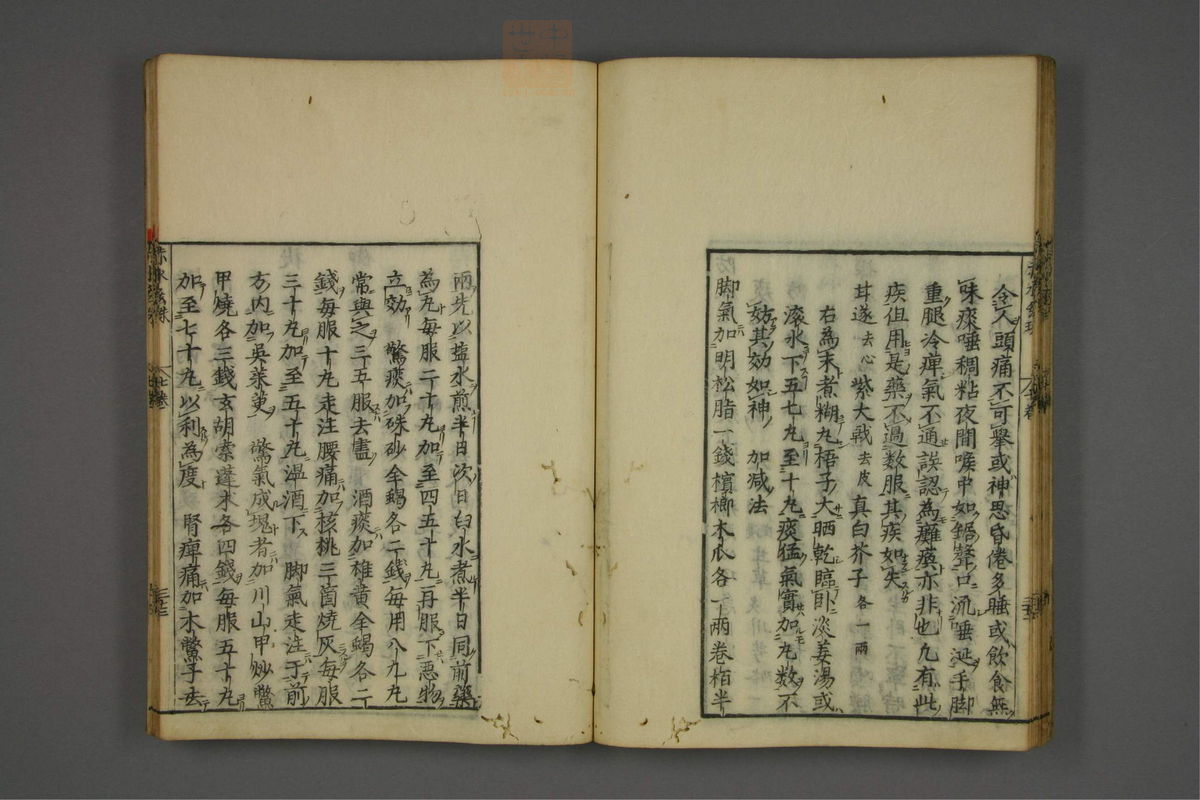 令人頭痛不可擧或神思昏倦多睡或飲食無
味痰唾稠粘夜間喉中如鋸聲口流唾涎手脚
重腿冷痺氣不通誤認為癱瘓亦非也凢有此
疾但用是藥不過数服其疾如失
甘遂去心 紫大戟去皮 真白芥子各一兩
右為末煮糊丸梧子大晒乾臨卧淡姜湯或
滚水下五七丸至十丸痰猛氣實加丸数不
妨其効如神 加减法
脚氣加明松脂一錢檳榔木瓜各一兩卷栢半
兩先以塩水煎半日次日白水煮半日同前藥
為丸每服二十丸加至四五十丸再服下悪物
立効 驚痰加硃砂全蝎各二錢每用八九丸
常與之三五服去盡 酒痰加雄黄全蝎各二
錢每服十丸走注腰痛加核桃三箇燒灰每服
三十丸加至五十丸温酒下 脚氣走注于前
方内加吳茱萸 驚氣成塊者加川山甲炒鱉
甲燒各三錢玄胡索蓬朮各四錢每服五十丸
加至七十丸以利為度 腎痺痛加木鱉子去
赤水玄珠
七卷